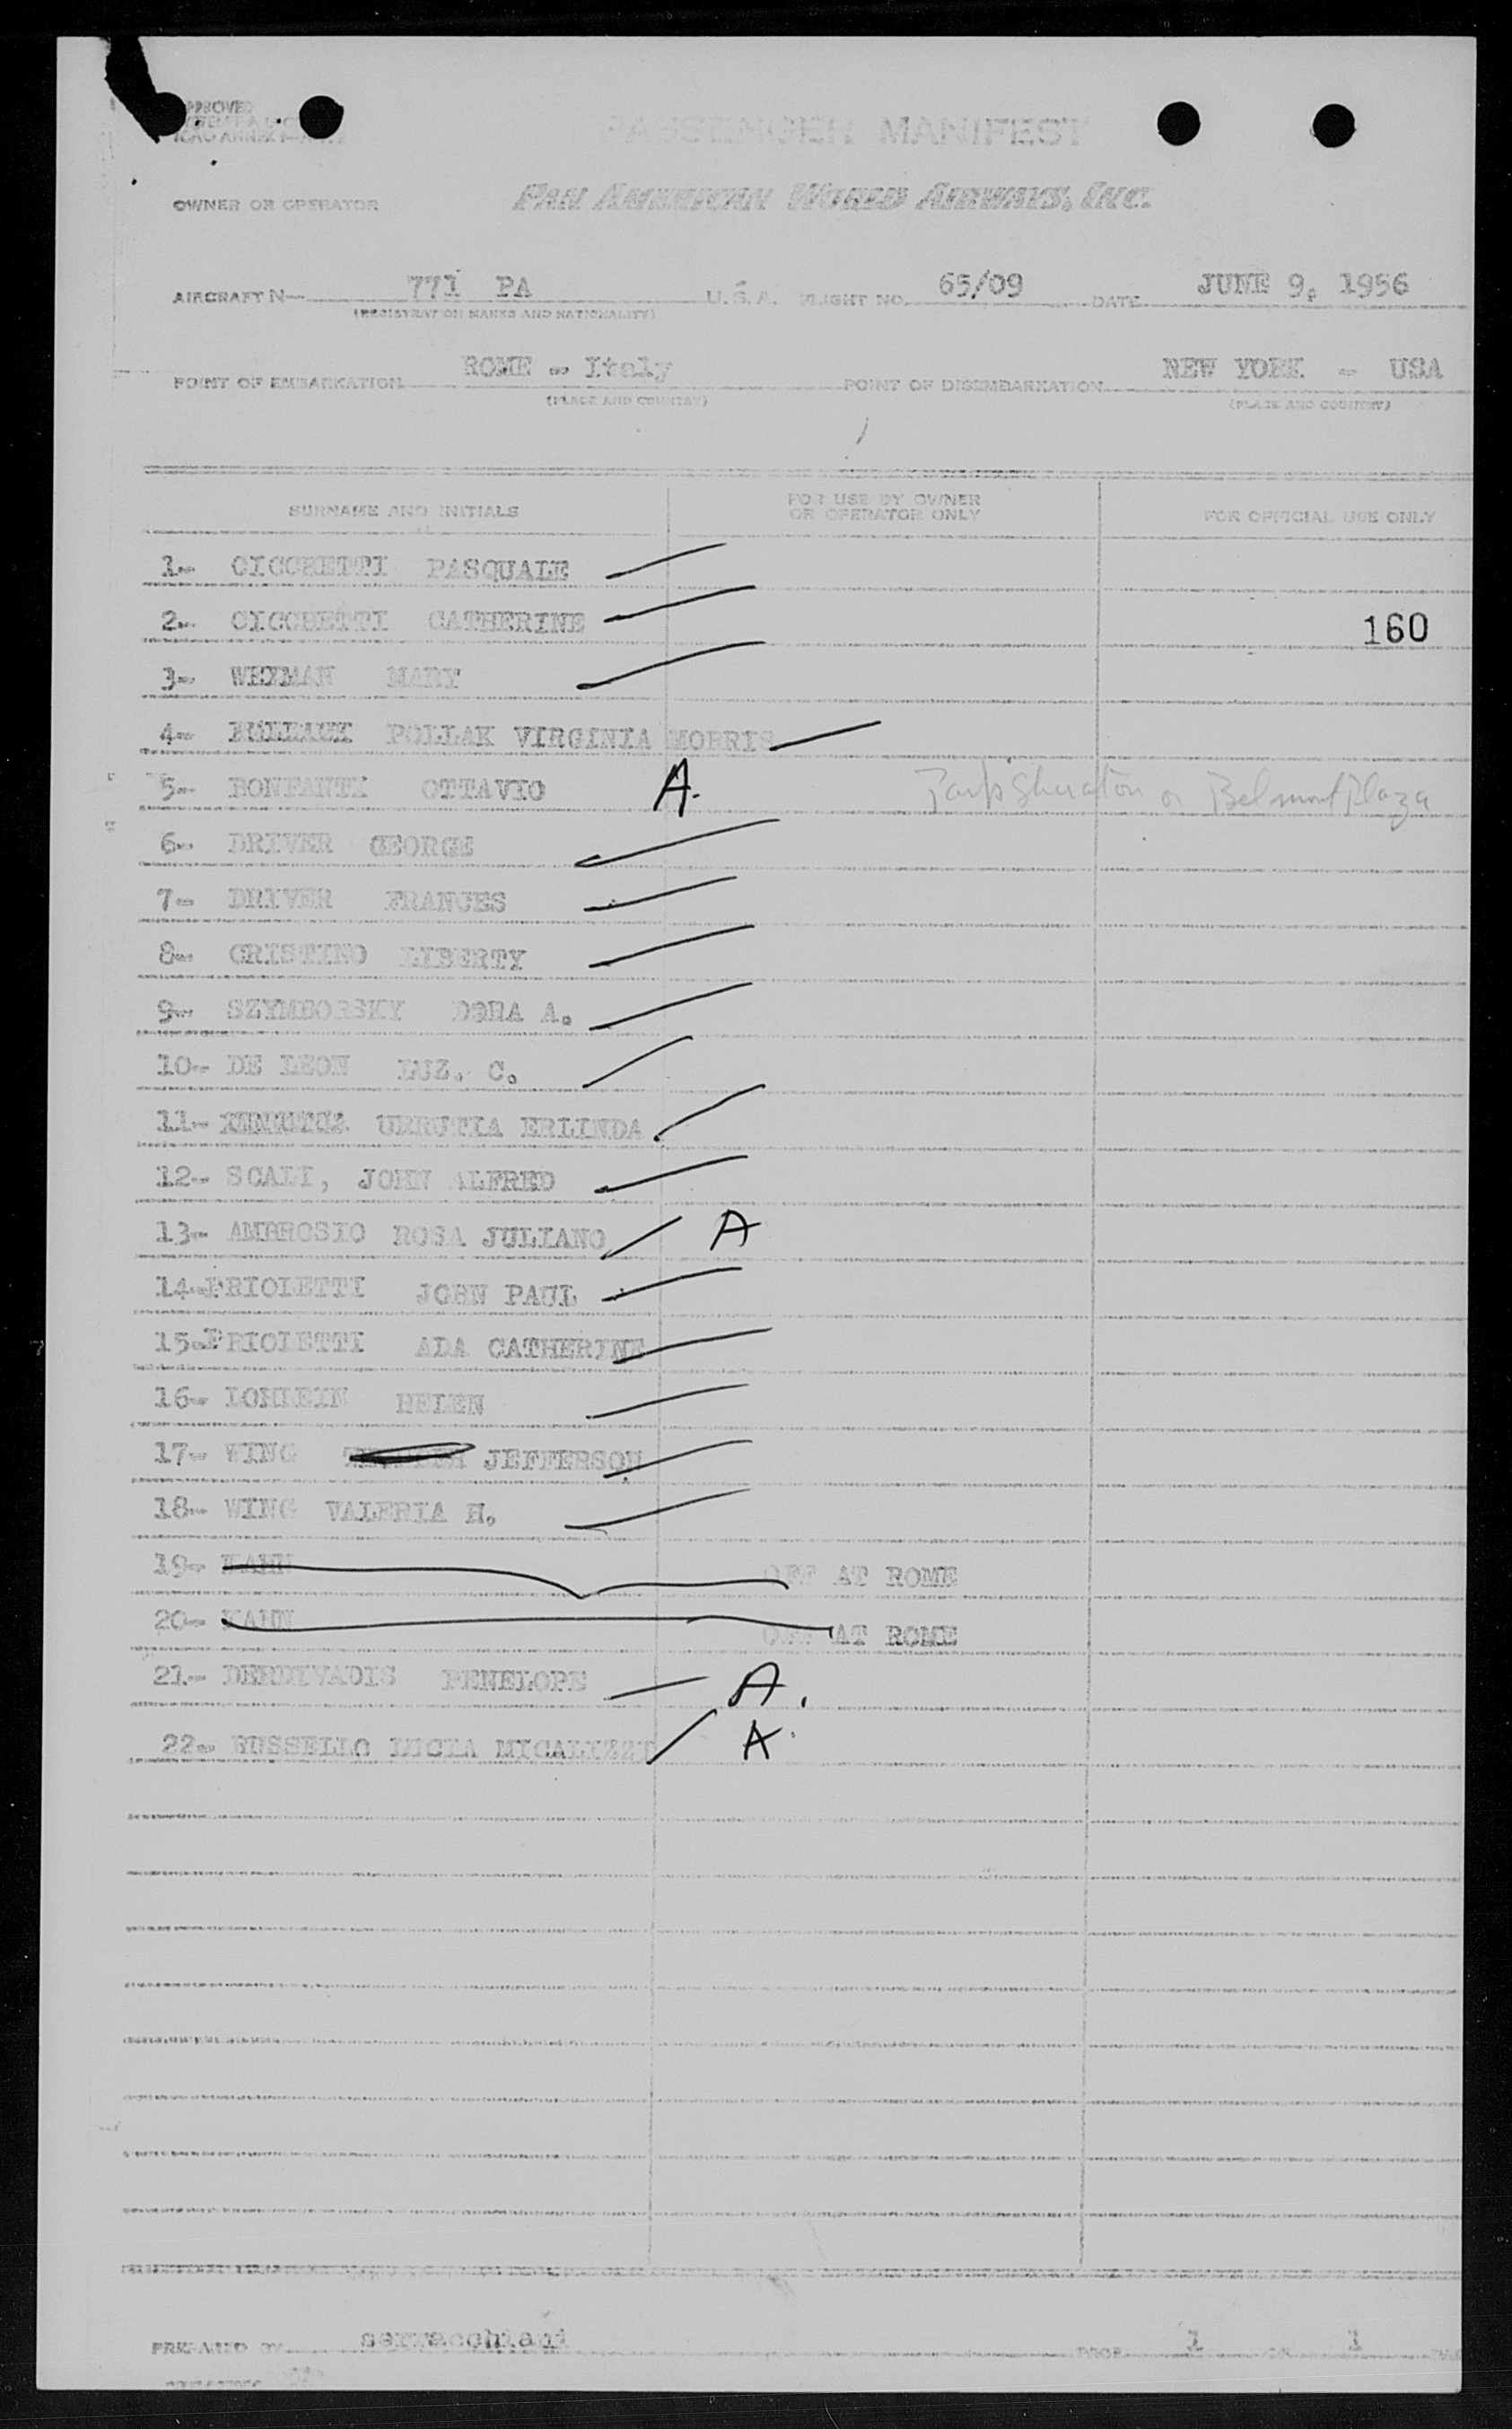 APPROVED
PASSENGER MANIFEST
OWNER OR OPERATOR PAN AMERICAN WORLD AIRWAYS, INC.
AIRCRAFT N— 771 PA U.S.A. FLIGHT NO. 65/09 DATE JUNE 9, 1956
(REGISTRATION MARKS AND NATIONALITY)
POINT OF EMBARKATION ROME - Italy POINT OF DISEMBARKATION NEW YORK - USA
(PLACE AND COUNTRY) (PLACE AND COUNTRY)
SURNAME AND INITIALS FOR USE BY OWNER OR OPERATOR ONLY FOR OFFICIAL USE ONLY
1- CICCHETTI PASQUALE
2- CICCHETTI CATHERINE 160
3- WEXMAN MARY
4- POLLAK VIRGINIA MORRIS
5- BONFANTI OTTAVIO A. Park Sheraton or Belmont Plaza
6- DRIVER GEORGE
7- DRIVER FRANCES
8- CRISTINO LIBERTY
9- SZYMBORSKY DORA A.
10- DE LEON LUZ. C.
11- URRUTIA ERLINDA
12- SCALI, JOHN ALFRED
13- AMBROSIO ROSA JULIANO A
14- PRIOLETTI JOHN PAUL
15- PRIOLETTI ADA CATHERINE
16- LOHLEIN HELEN
17- WING JEFFERSON
18- WING VALERIA H.
19- KAHN OFF AT ROME
20- KAHN OFF AT ROME
21- PENELOPE A.
22- RUSSELLO LUCIA MICALIZZI A.
PREPARED BY PAGE 1 OF 1